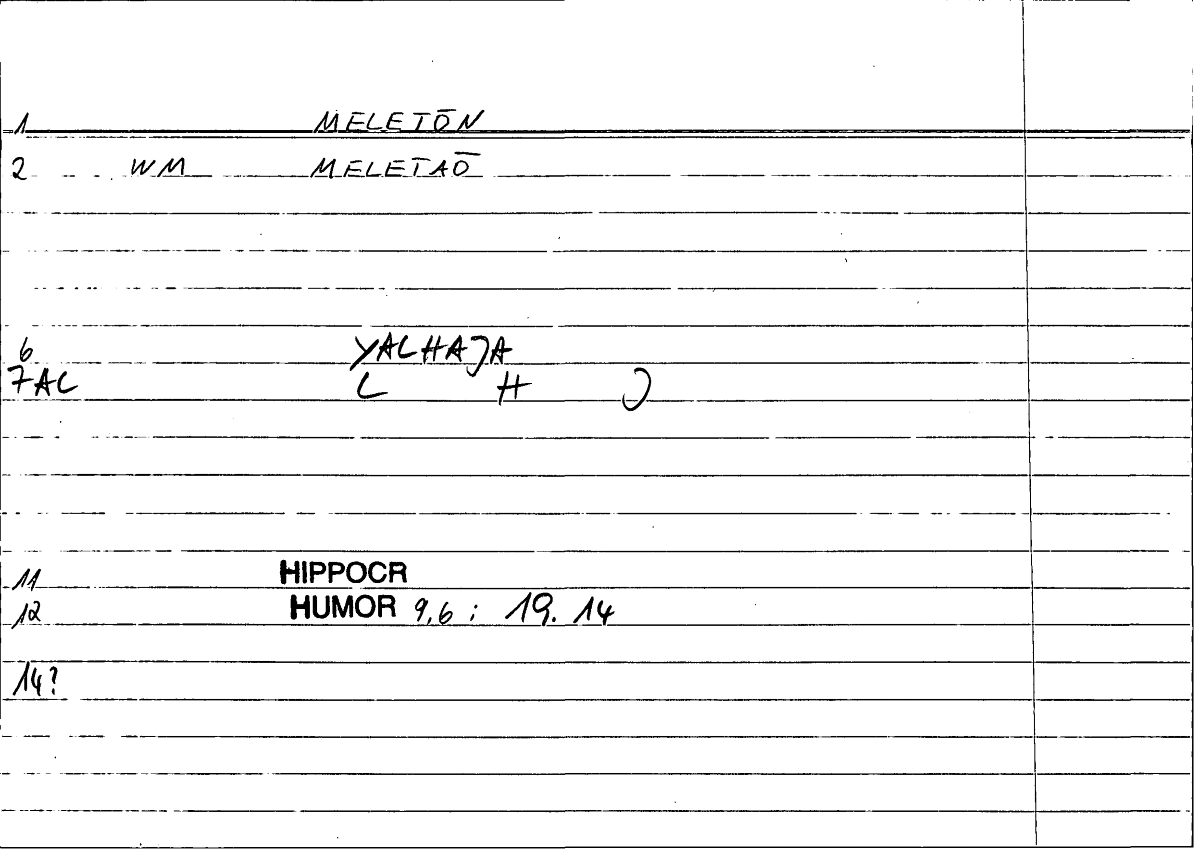 1 MELETŌN
2 WM MELETAŌ
6 YALHAJA
7AC L H J
11 HIPPOCR
12 HUMOR 9,6 ; 19. 14
14?